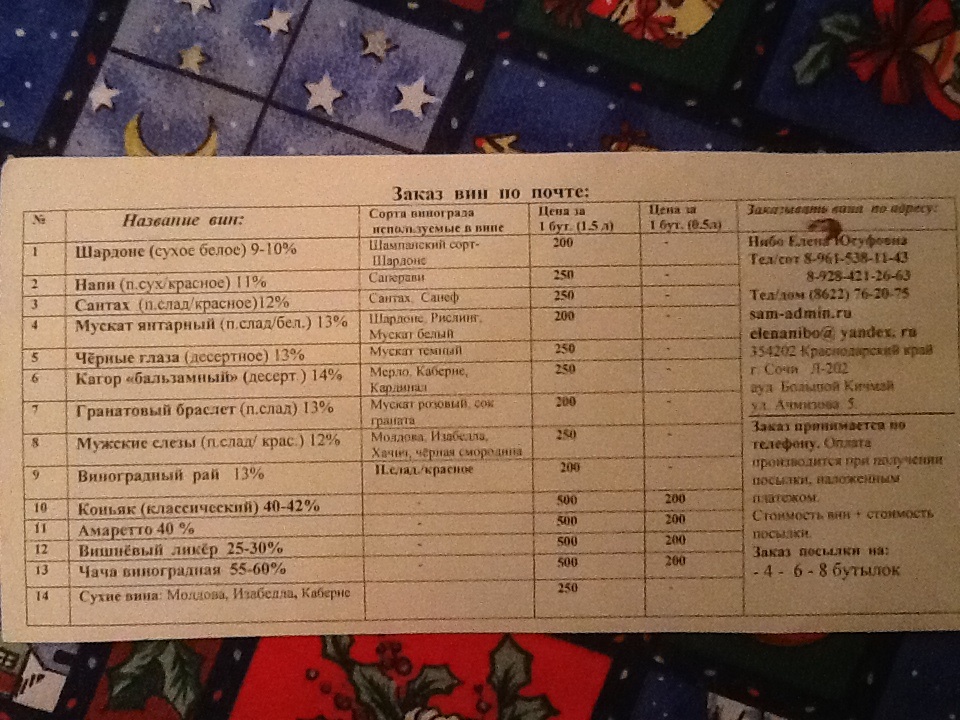 Заказ вин по почте:
№ Название вин: Сорта винограда используемые в вине Цена за 1 бут. (1.5 л) Цена за 1 бут. (0.5л)
1 Шардоне (сухое белое) 9-10% Шампанский сорт- Шардоне 200 -
2 Напи (п.сух/красное) 11% Саперави 250 -
3 Сантах (п.слад/красное)12% Сантах, Санеф 250 -
4 Мускат янтарный (п.слад/бел.) 13% Шардоне, Рислинг, Мускат белый 200 -
5 Чёрные глаза (десертное) 13% Мускат темный 250 -
6 Кагор «бальзамный» (десерт.) 14% Мерло, Каберне, Кардинал 250 -
7 Гранатовый браслет (п.слад) 13% Мускат розовый, сок граната 200 -
8 Мужские слезы (п.слад/ крас.) 12% Молдова, Изабелла, Хачич, чёрная смородина 250 -
9 Виноградный рай 13% П.слад/красное 200 -
10 Коньяк (классический) 40-42% - 500 200
11 Амаретто 40 % - 500 200
12 Вишнёвый ликёр 25-30% - 500 200
13 Чача виноградная 55-60% 500 200
14 Сухие вина: Молдова, Изабелла, Каберне 250 -
Заказывать вина по адресу:
Нибо Елена Югуфовна
Тел/сот 8-961-538-11-43
8-928-421-26-63
Тел/дом (8622) 76-20-75
sam-admin.ru
elenanibo@ yandex. ru
354202 Краснодарский край
г. Сочи Л-202
аул Большой Кичмай
ул. Ачмизова 5.
Заказ принимается по
телефону. Оплата
производится при получении
посылки, наложенным
платежом.
Стоимость вин + стоимость
посылки.
Заказ посылки на:
- 4 - 6 - 8 бутылок